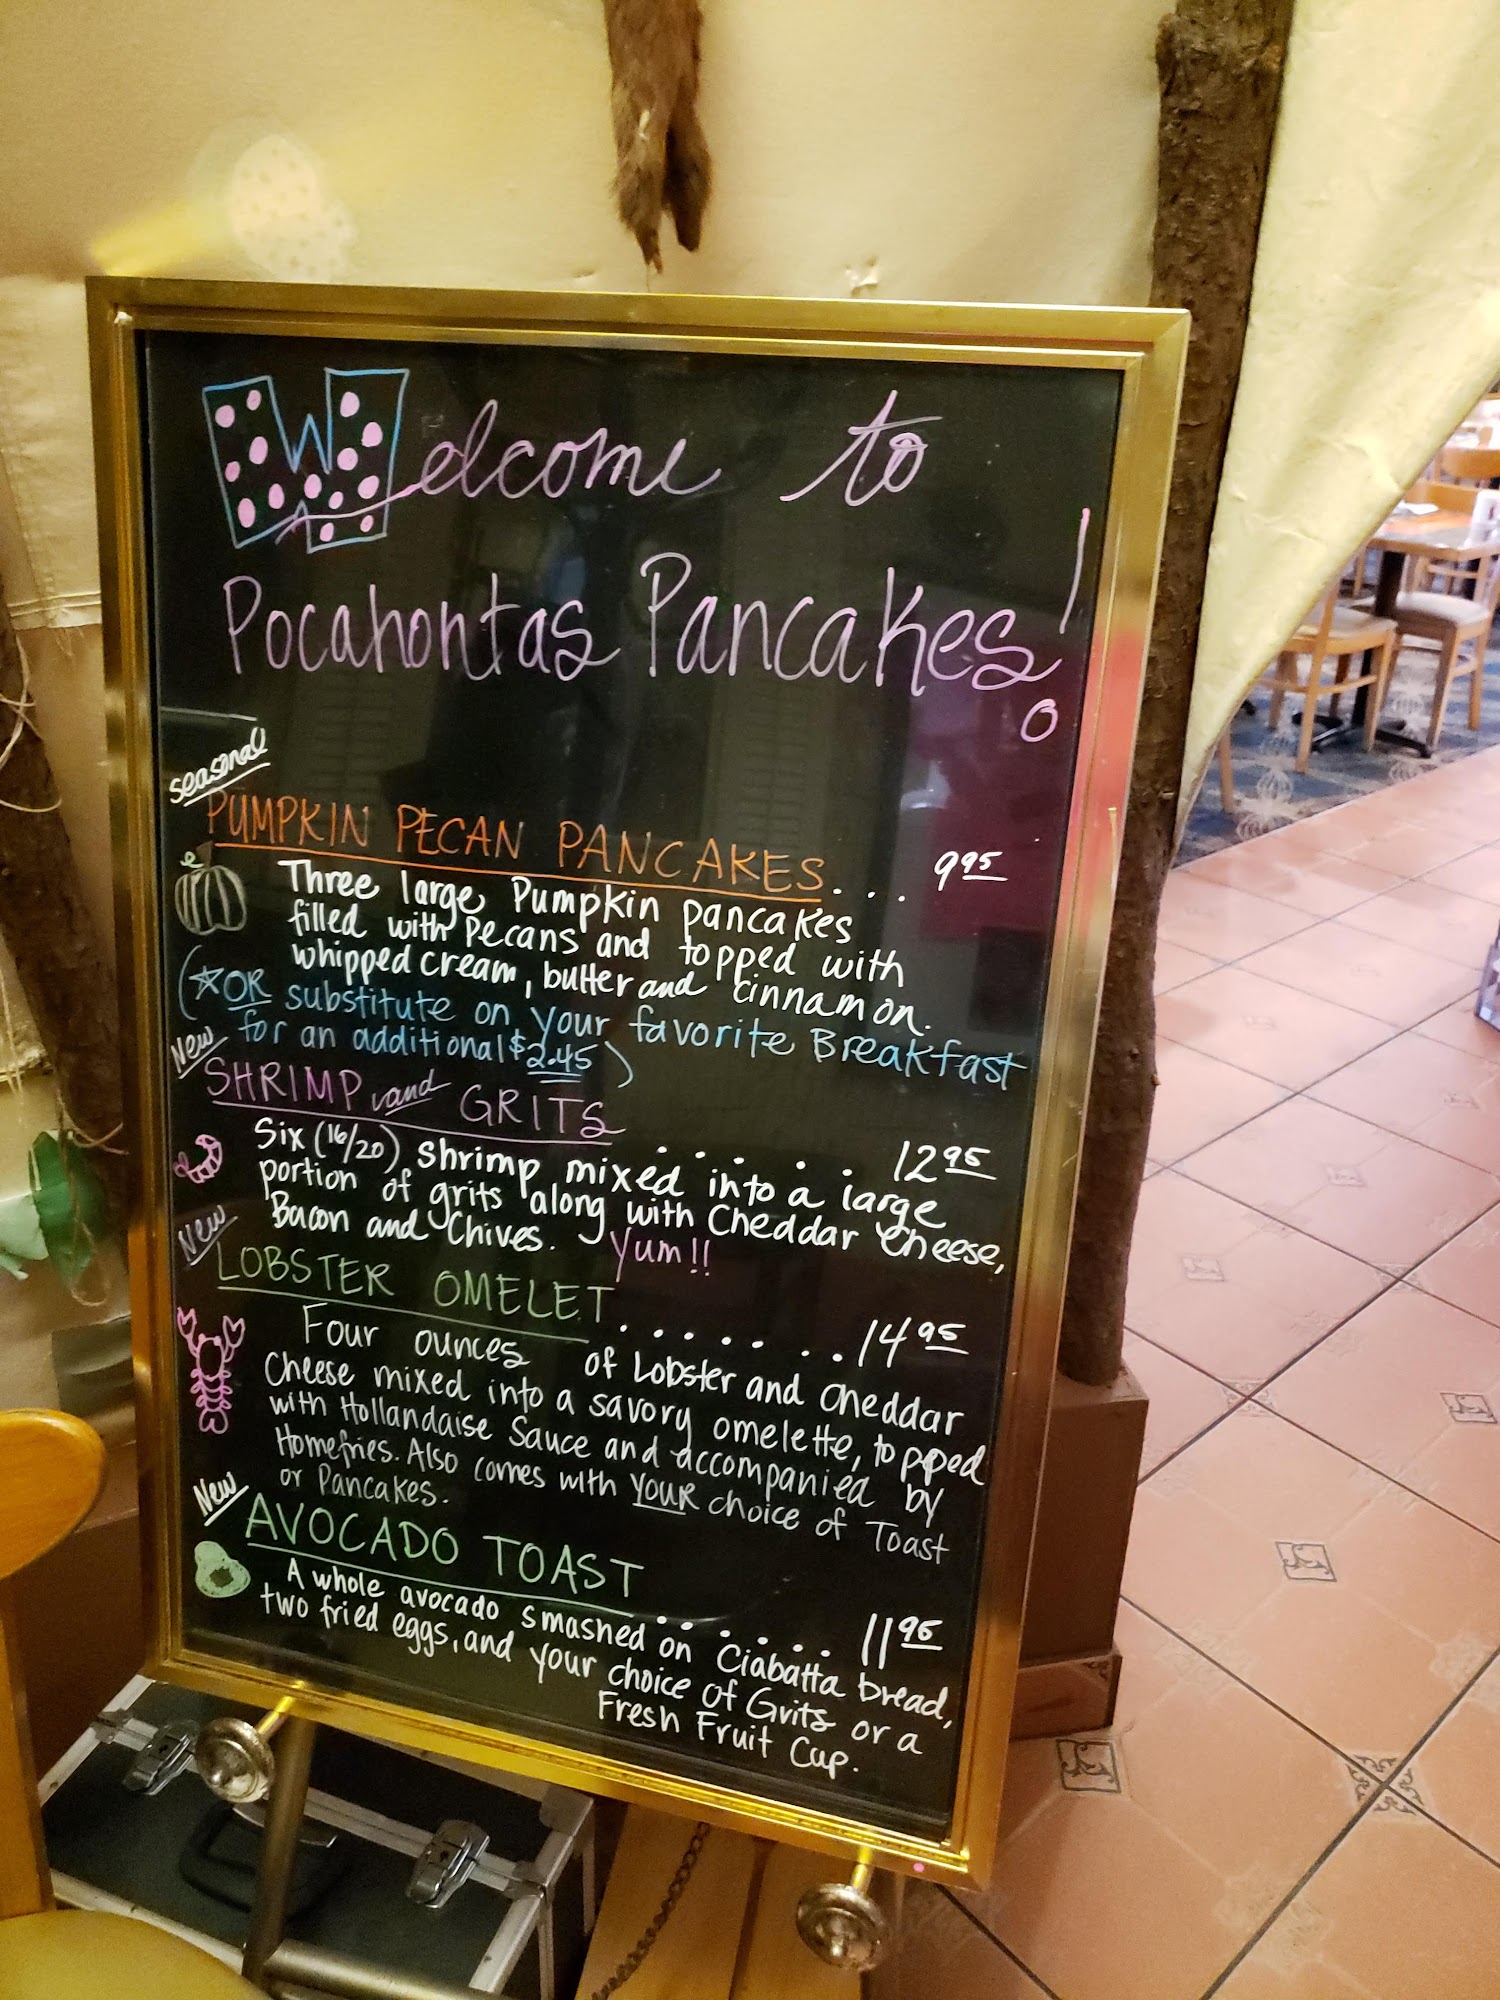 Welcome to
Pocahontas Pancakes!
seasonal
PUMPKIN PECAN PANCAKES... 9 95
Three large Pumpkin pancakes
filled with Pecans and topped with
whipped cream, butter and cinnamon.
(☆OR substitute on your favorite Breakfast
for an additional $2.45)
New
SHRIMP and GRITS ...... 12 95
Six (16/20) shrimp mixed into a large
portion of grits along with Cheddar Cheese,
Bacon and Chives. Yum!!
New
LOBSTER OMELET....... 14 95
Four ounces of Lobster and Cheddar
Cheese mixed into a savory omelette, topped
with Hollandaise Sauce and accompanied by
Homefries. Also comes with YOUR choice of Toast
or Pancakes.
New
AVOCADO TOAST ....... 11 95
A whole avocado smashed on Ciabatta bread,
two fried eggs, and your choice of Grits or a
Fresh Fruit Cup.